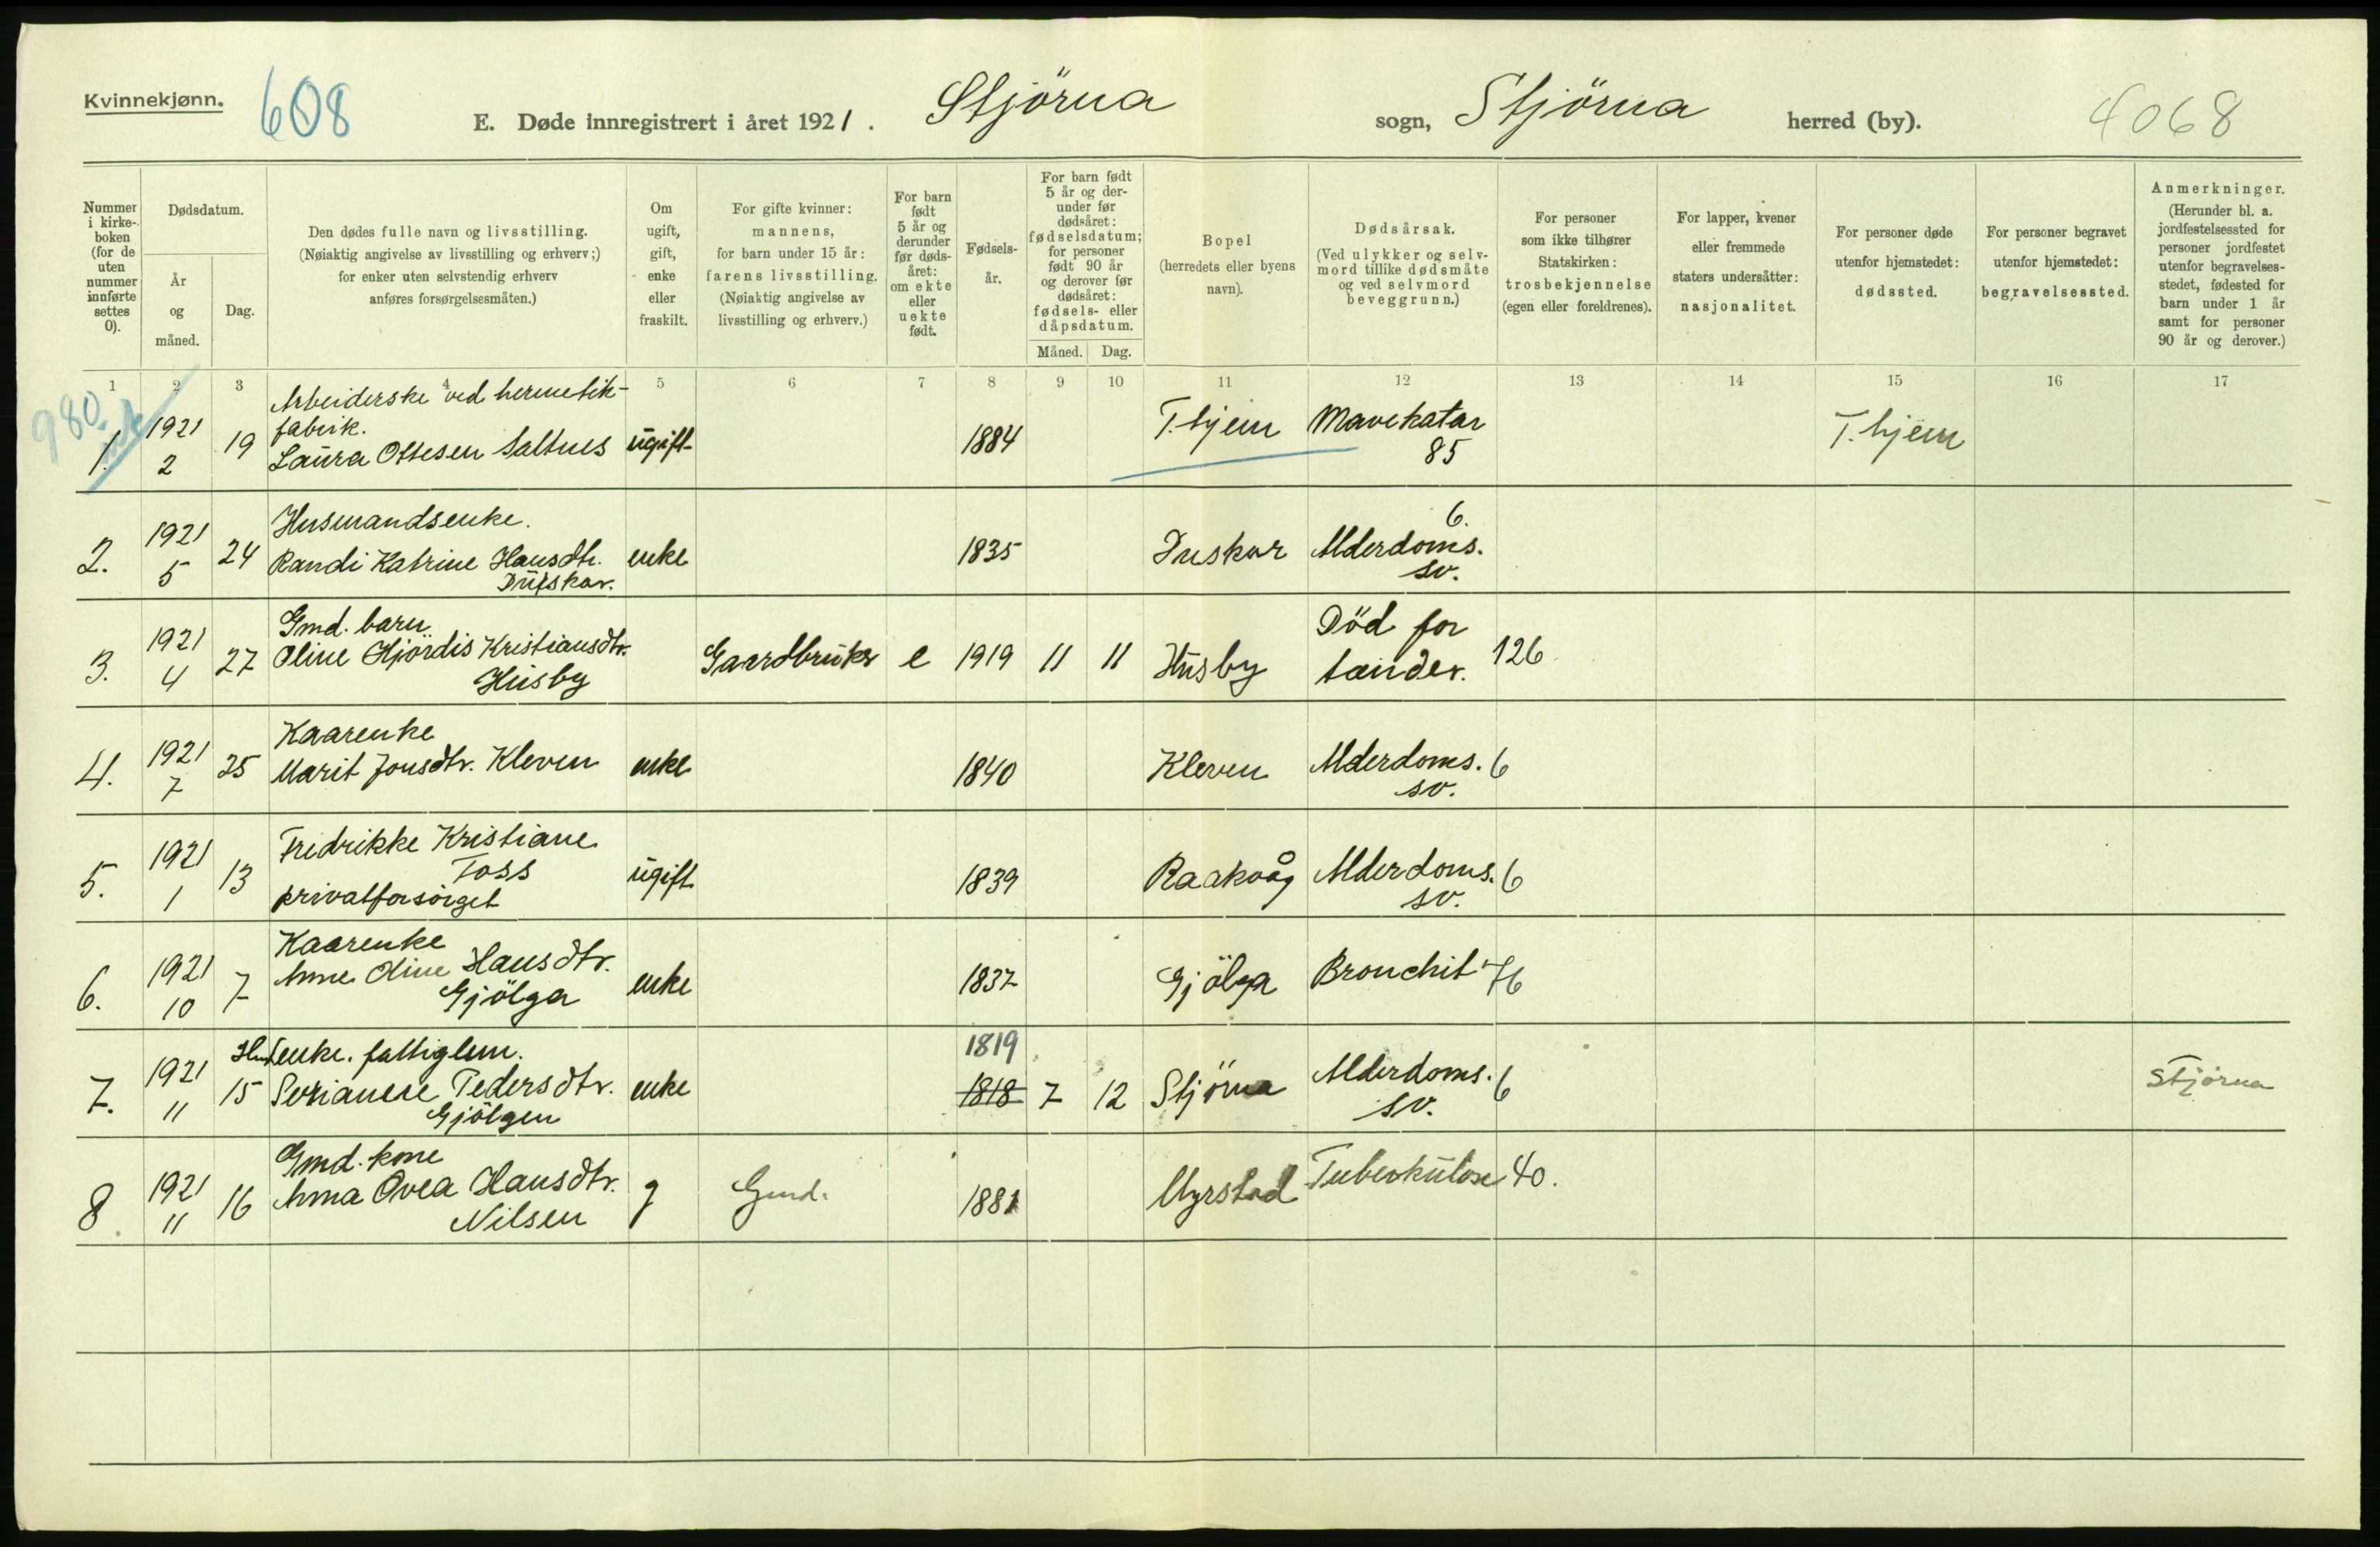 Kvinnekjønn.
608
E. Døde innregistrert i året 1921.
Stjörna sogn, Stjörna herred (by).
4068
Nummer i kirke-boken (for de uten nummer innførte settes 0).
Dødsdatum.
År og måned.
Dag.
Den dødes fulle navn og livsstilling.
(Nøiaktig angivelse av livsstilling og erhverv;)
for enker uten selvstendig erhverv
anføres forsørgelsesmåten.)
Om ugift, gift, enke eller fraskilt.
For gifte kvinner: mannens, for barn under 15 år: farens livsstilling. (Nøiaktig angivelse av livsstilling og erhverv.)
For barn født 5 år og derunder før døds-året: om ekte eller uekte født.
Fødsels-år.
For barn født 5 år og der-under før dødsåret: fødselsdatum; for personer født 90 år og derover før dødsåret: fødsels- eller dåpsdatum.
Måned. Dag.
Bopel (herredets eller byens navn).
Dødsårsak. (Ved ulykker og selv-mord tillike dødsmåte og ved selvmord beveggrunn.)
For personer som ikke tilhører Statskirken: trosbekjennelse (egen eller foreldrenes).
For lapper, kvener eller fremmede staters undersåtter: nasjonalitet.
For personer døde utenfor hjemstedet: dødssted.
For personer begravet utenfor hjemstedet: begravelsessted.
Anmerkninger. (Herunder bl. a. jordfestelsessted for personer jordfestet utenfor begravelses-stedet, fødested for barn under 1 år samt for personer 90 år og derover.)
1 2 3 4 5 6 7 8 9 10 11 12 13 14 15 16 17
980.
Arbeiderske ved hermetik-
fabrik.
1. 1921 2 19 Laura Ottesen Saltnes ugift 1884 T.hjem Mavekatar 85 T.hjem
Husmandsenke.
2. 1921 5 24 Randi Katrine Hansdtr. enke 1835 Duskar Alderdoms. sv. 6.
Duskar.
Gmd. barn
3. 1921 4 27 Oline Hjördis Kristiansdtr. Gaardbruker e 1919 11 11 Husby Död for tænder. 126
Husby
Kaarenke
4. 1921 7 25 Marit Jonsdtr. Kleven enke 1840 Kleven Alderdoms. sv. 6
5. 1921 1 13 Fredrikke Kristiane
Foss ugift 1839 Raakvåg Alderdoms. sv. 6
privatforsörget
Kaarenke
6. 1921 10 7 Anne Oline Hansdtr. enke 1837 Gjölga Bronchit 76
Gjölga
enke. fattiglem. 1819
7. 1921 11 15 Serianne Pedersdtr. enke 1818 7 12 Stjörna Alderdoms. sv. 6 Stjörna
Gjölgen
Gmd. kone
8. 1921 11 16 Anna Ovea Hansdtr. g Gmd. 1881 Myrstad Tuberkulose 40.
Nilsen